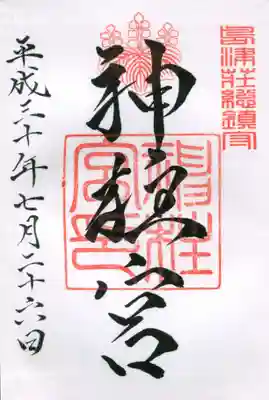 島津荘総鎮守
神柱宮
神柱
宮印
平成三十年七月二十六日